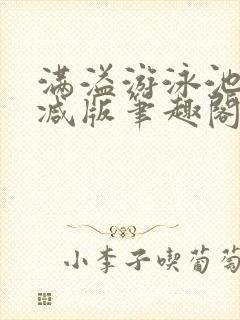 满溢游泳池
减版筆趣阁
小李子喫葡萄